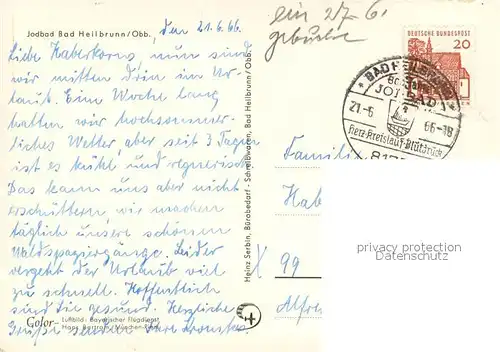 Jodbad Bad Heilbrunn/Obb.
den 21.6.66
ein 27.6.
Liebe Haberkorns, nun sind
wir mitten drin im Ur-
laub. Eine Woche lang
hatten wir hochsommer-
liches Wetter, aber seit 3 Tagen
ist es kühl und regnerisch.
Das kann uns aber nicht
erschüttern, wir machen
täglich unsere schönen
Waldspaziergänge. Leider
vergeht der Urlaub viel
zu schnell. Hoffentlich
sind Sie gesund. Herzliche
Grüße senden Ihre
Color-
Luftbild: Bayerischer Flugdienst
Hans Bertram, München-Riem
Heinz Serbin, Bürobedarf - Schreibwaren, Bad Heilbrunn / Obb.
DEUTSCHE BUNDESPOST
20
BAD HEILBRUNN
JODBAD
21.-6 66-18
Herz·Kreislauf·Blutdruck
Familie
Hab
X 99
Alfre
privacy protection
Datenschutz